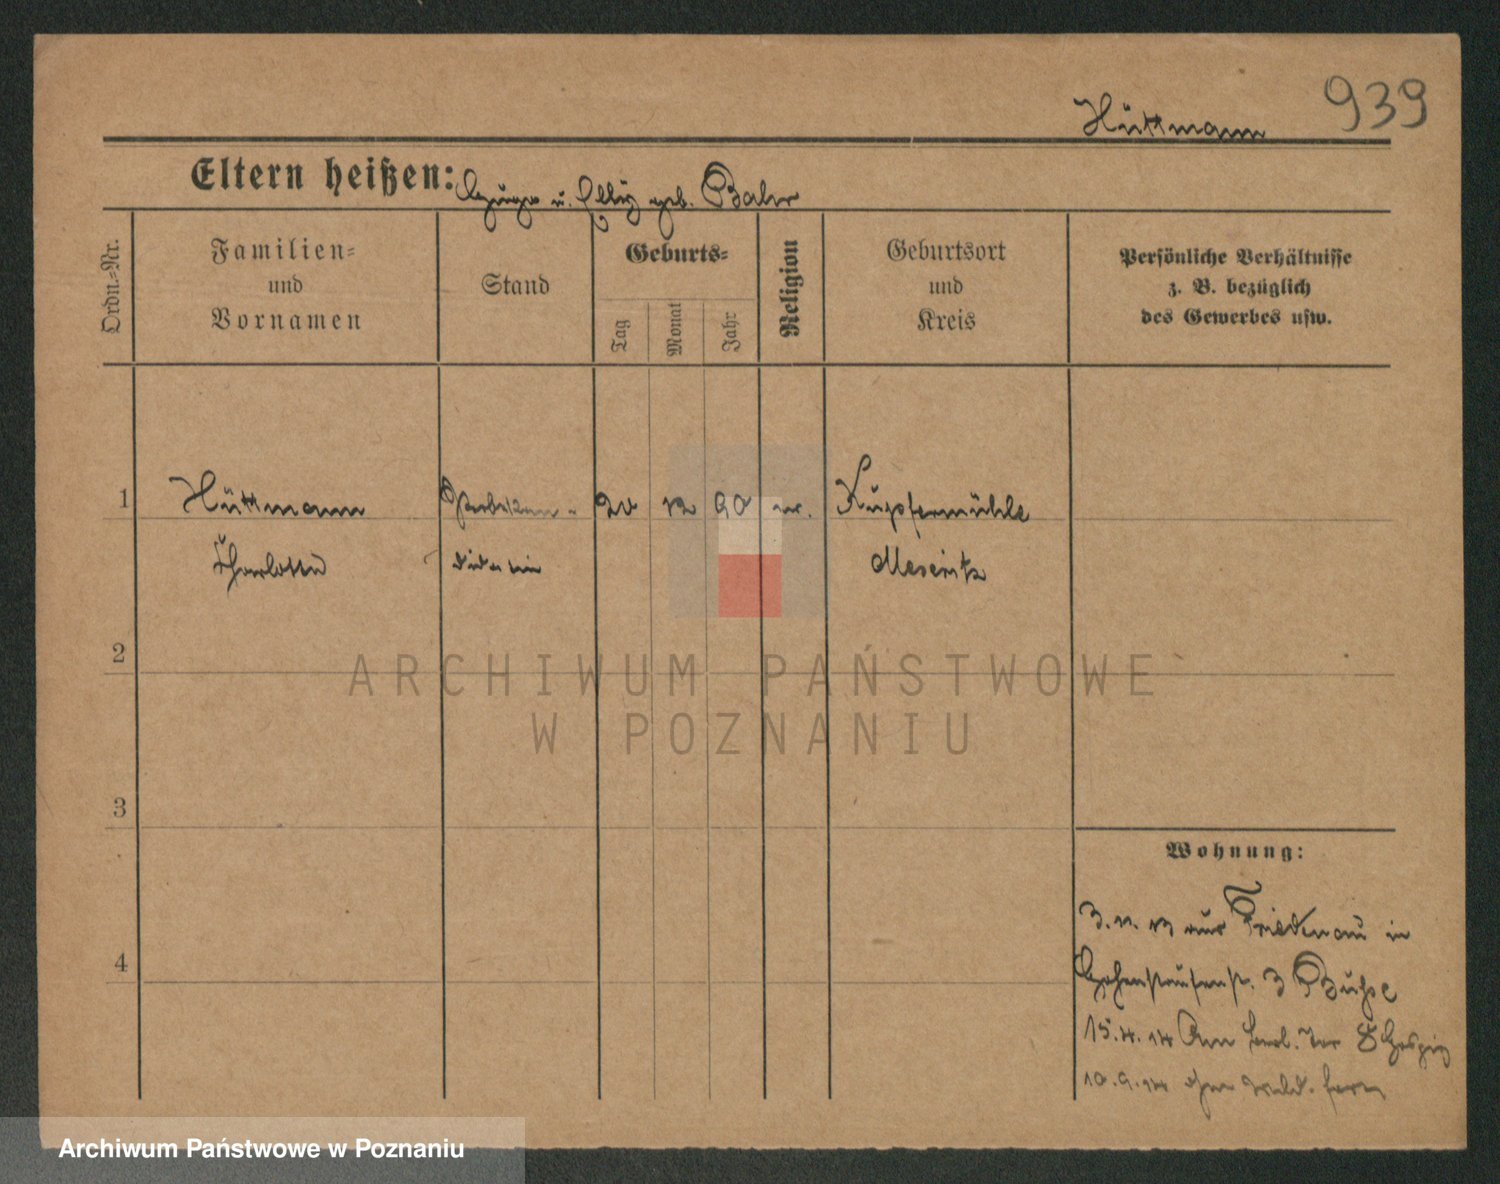 939
Hüttmann
Eltern heißen: Hugo u. Elly geb. Bahr
Ordn.-Nr.
Familien-
und
Vornamen
Stand
Geburts-
Tag
Monat
Jahr
Religion
Geburtsort
und
Kreis
Persönliche Verhältnisse
z. B. bezüglich
des Gewerbes usw.
1
Hüttmann
20 12 90
Kupfermühle
Charlotte
Meseritz
2
ARCHIWUM PAŃSTWOWE
W POZNANIU
3
Wohnung:
3. 11. 13 aus Friedenau in
4
Hohenstaufenstr. 3
15. 4. 14 Am Berl. Tor 8 Hospiz
10. 9. 14
Archiwum Państwowe w Poznaniu